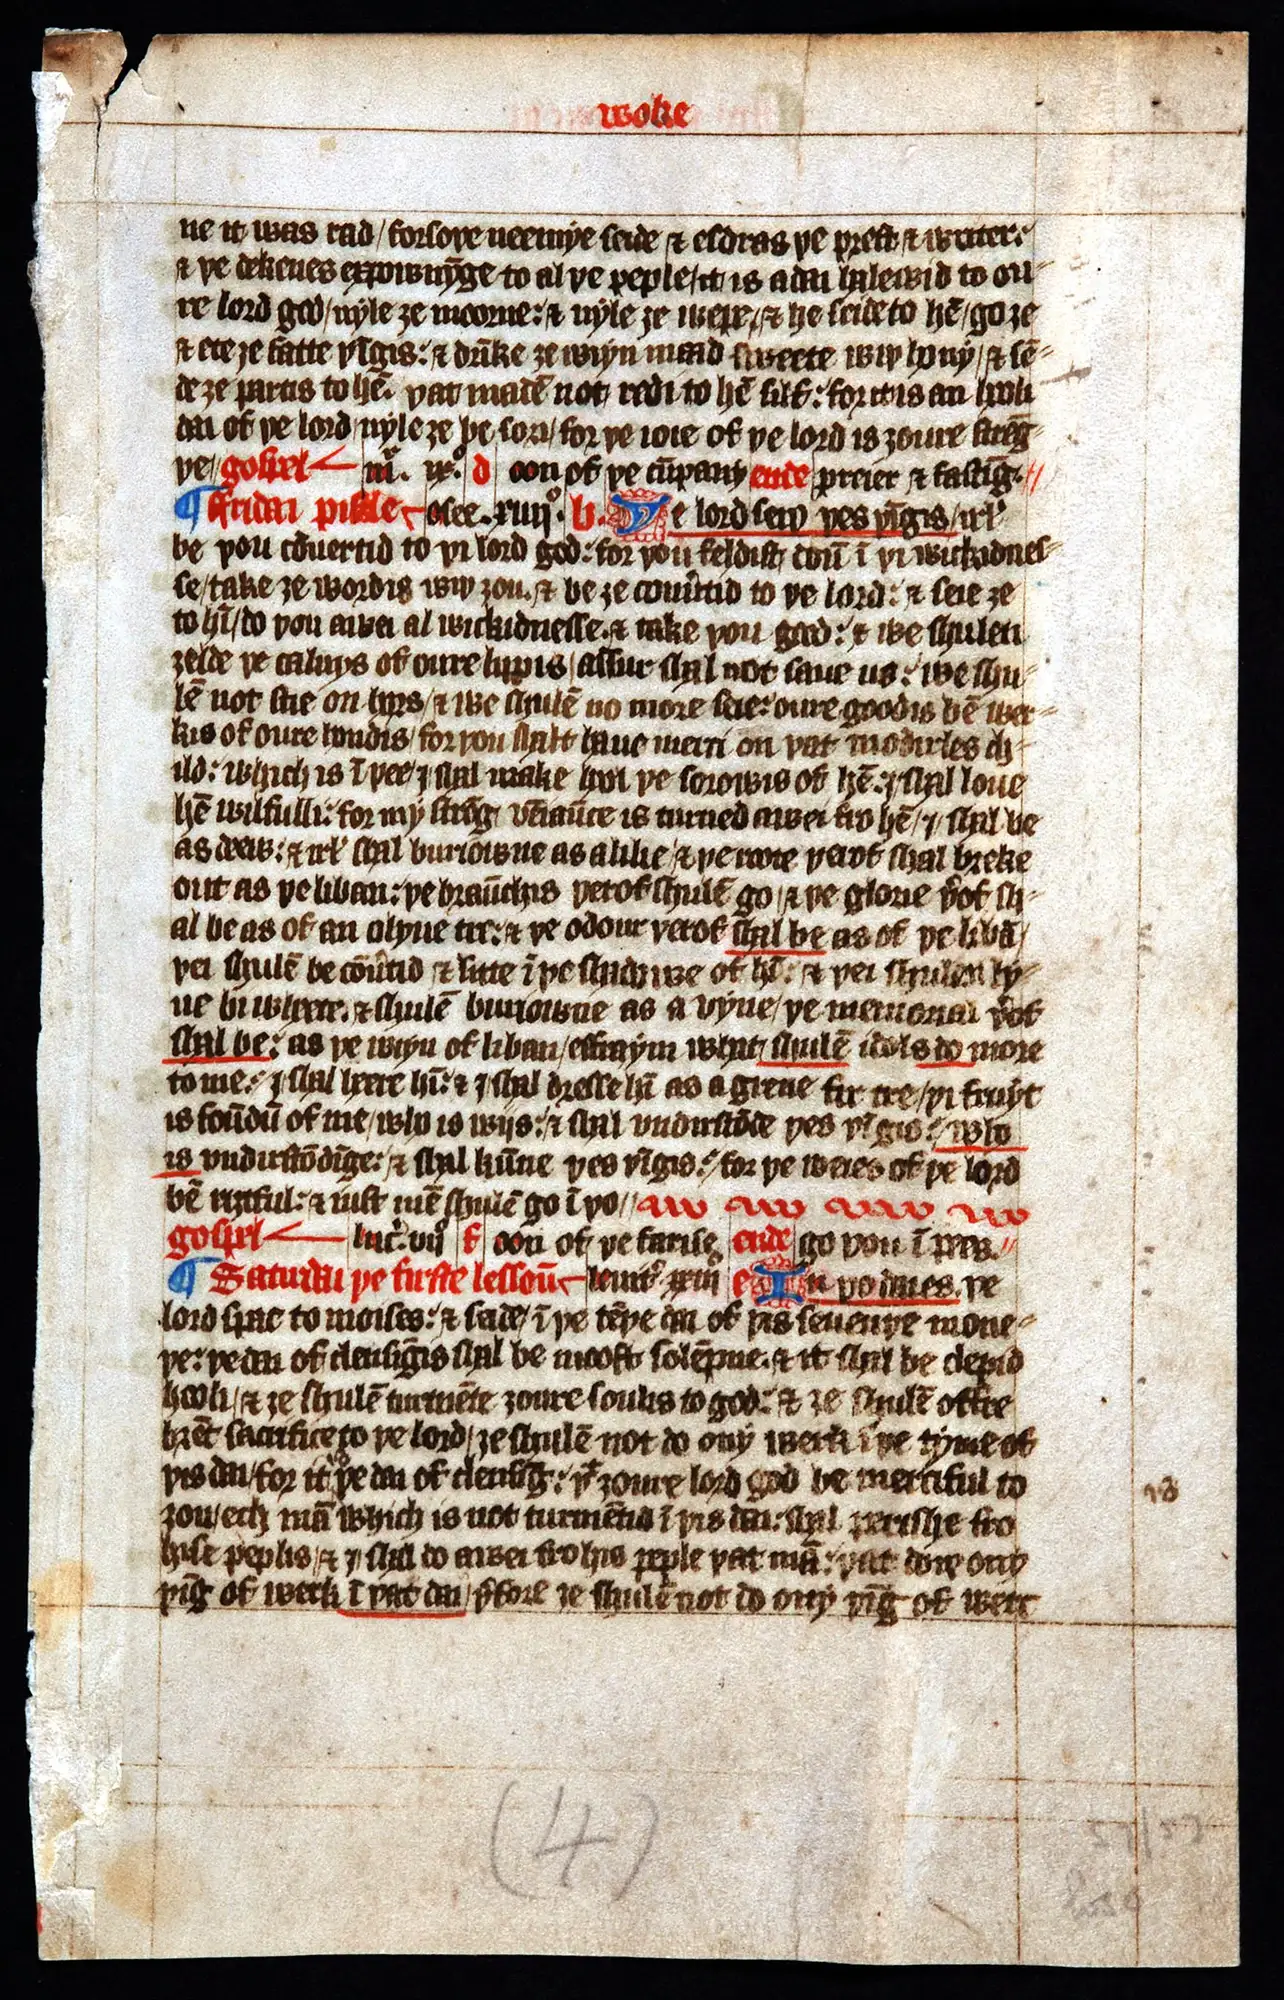 woke
ue it was rad / forsoþe neemye seide ⁊ esdras þe prest ⁊ writer:
⁊ þe dekenes expownyn̄ge to al þe peple / it is a dai halewid to ou-
re lord god / nyle ȝe moorne: ⁊ nyle ȝe wepe / ⁊ he seide to hē / go ȝe
⁊ ete ȝe fatte þīgis: ⁊ drīke ȝe wiyn maad sweete wiþ hony / ⁊ sē-
de ȝe partis to hē. þat madē not redi to hē silf: for it is an hooli
dai of þe lord / nyle ȝe be sori / for þe ioie of þe lord is ȝoure strēg-
þe / gospel mr̄. ix. d oon of þe cūpany ende preier ⁊ fastīg. //
¶ fridai pistle osee. xiiij°. b. Þe lord seiþ þes þīgis / irl̄
be þou cōuertid to þi lord god: for þou feldist doū ī þi wickidnes-
se / take ȝe wordis wiþ ȝou. ⁊ be ȝe conuˀtid to þe lord: ⁊ seie ȝe
to hī / do þou awei al wickidnesse. ⁊ take þou good: ⁊ we shulen
ȝelde þe caluys of oure lippis / assur shal not saue us: we shu-
lē not stie on hors / ⁊ we shulē no more seie: oure goodis bē wer-
kis of oure hondis / for þou shalt haue merci on þat modirles ch-
ild: which is ī þee / j shal make hool þe sorowis of hē: j shal loue
hē wilfulli: for my strōg veniaūce is turned awei fro hē / j shal be
as deew: ⁊ irl̄ shal buriowne as a lilie / ⁊ þe roote þerof shal breke
out as þe liban: þe braūchis þerof shulē go / ⁊ þe glorie þˀof sh-
al be as of an olyue tre: ⁊ þe odour þerof shal be as of þe libā /
þei shulē be cōuˀtid ⁊ sitte ī þe shadowe of hī: ⁊ þei shulen ly-
ue bi wheete. ⁊ shulē buriowne as a vyne / þe memorial þˀof
shal be: as þe wiyn of liban / effraym what shulē idols do more
to me: j shal heere hī: ⁊ j shal dresse hī as a grene fir tre / þi fruyt
is foūdū of me / who is wijs: ⁊ shal vndirstōde þes þīgis: who
is vndirstōdīge: ⁊ shal kūne þes þīgis: for þe weies of þe lord
bē riȝtful: ⁊ iust mē shulē go ī þo //
gospel luc̄. vij° f oon of þe farise ende go þou ī pees. //
¶ Saturdai þe firste lessoū leuit̄. xxiij e In þo daies. þe
lord spac to moises: ⁊ seide / ī þe tēþe dai of þis seuenþe mone-
þe: þe dai of clensīgis shal be moost solēpne. ⁊ it shal be clepid
hooli / ⁊ ȝe shulē turmēte ȝoure soulis to god: ⁊ ȝe shulē offre
brēt sacrifice to þe lord / ȝe shulē not do ony werk ī þe tyme of
þis dai / for it is þe dai of clensīg: þt ȝoure lord god be merciful to
ȝou / ech mā which is not turmētid ī þis dai: shal perishe fro
hise peplis / ⁊ j shal do awei fro his peple þat mā: þat doiþ ony
þīg of werk ī þat dai / þˀfore ȝe shulē not do ony þīg of werc
(4)